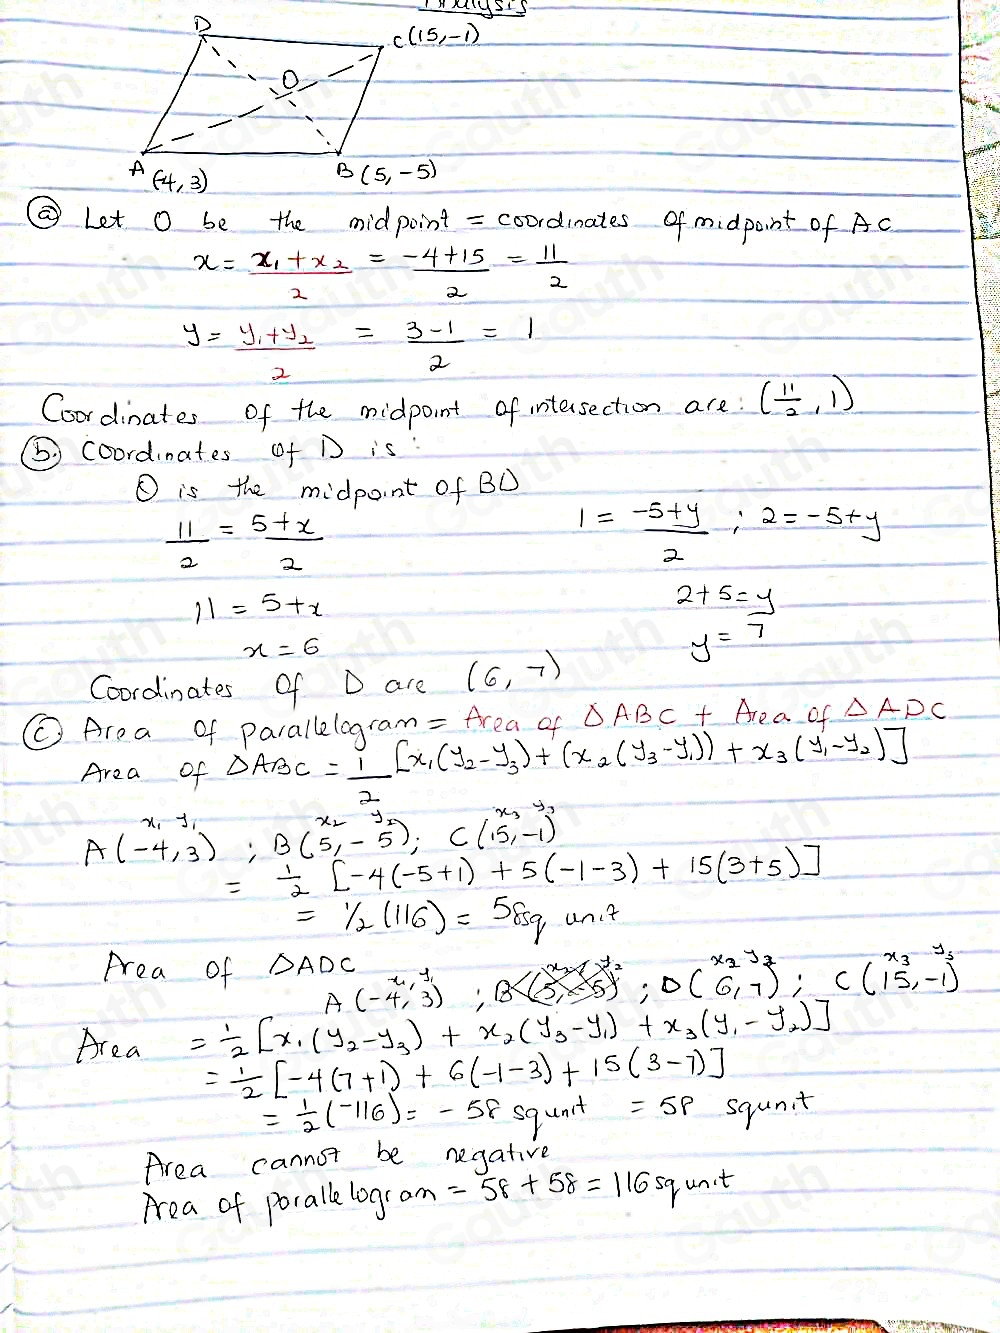 Analysis
D
C(15,-1)
O
A (-4, 3)
B (5, -5)
(a) Let O be the midpoint = coordinates of midpoint of AC
x = x₁+x₂/2 = -4+15/2 = 11/2
y = y₁+y₂/2 = 3-1/2 = 1
Coordinates of the midpoint of intersection are: (11/2, 1)
(b.) Coordinates of D is:
O is the midpoint of BD
11/2 = 5+x/2
1 = -5+y/2 ; 2 = -5+y
11 = 5+x
2+5 = y
x = 6
y = 7
Coordinates of D are (6, 7)
(c) Area of parallelogram = Area of △ABC + Area of △ADC
Area of △ABC = 1/2 [x₁(y₂-y₃) + (x₂(y₃-y₁)) + x₃(y₁-y₂)]
x₁ y₁ x₂ y₂ x₃ y₃
A(-4,3) ; B(5,-5); C(15,-1)
= 1/2 [-4(-5+1) + 5(-1-3) + 15(3+5)]
= 1/2 (116) = 58sq unit
Area of △ADC
x₁ y₁ x₂ y₂ x₂ y₂ x₃ y₃
A(-4,3) ; B(5,-5) ; D(6,7); C(15,-1)
Area = 1/2 [x₁(y₂-y₃) + x₂(y₃-y₁) + x₃(y₁-y₂)]
= 1/2 [-4(7+1) + 6(-1-3) + 15(3-7)]
= 1/2 (-116) = -58 sq unit = 58 squnit
Area cannot be negative
Area of parallelogram = 58 + 58 = 116 sq unit